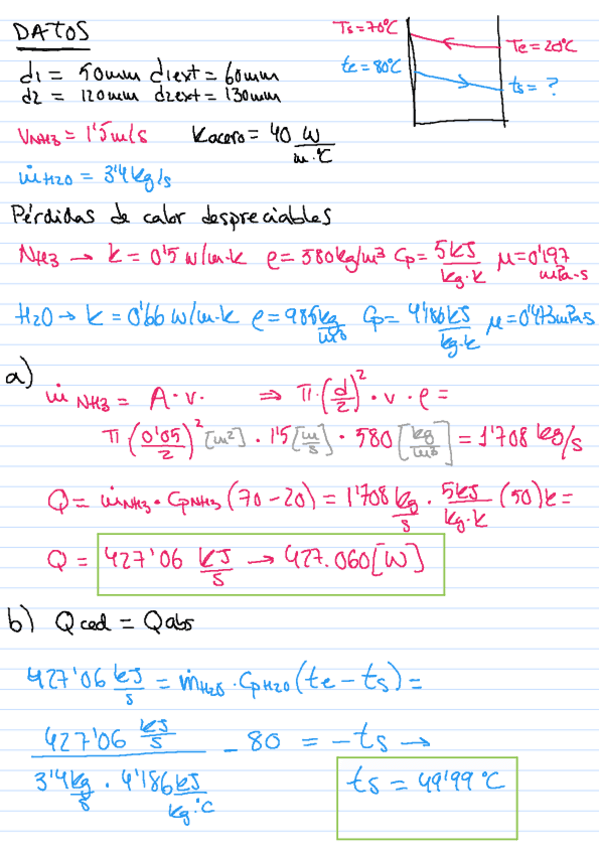 DATOS
Ts=70°C
Te=20°C
te=80°C
ts= ?
d1 = 50mm d1ext = 60mm
d2 = 120mm d2ext = 130mm
VNH3 = 1'5m/s Kacero = 40 W/m·°C
ṁH2O = 3'4kg/s
Pérdidas de calor despreciables
NH3 → k = 0'5 W/m·k ρ = 580kg/m³ Cp = 5kJ/kg·k μ=0'197 mPa·s
H2O → k = 0'66 W/m·k ρ = 985kg/m³ Cp = 4'186kJ/kg·k μ=0'473mPa·s
a)
ṁNH3 = A·v. ⇒ π·(d/2)²·v·ρ =
π(0'05/2)² [m²] · 1'5[m/s] · 580 [kg/m³] = 1'708 kg/s
Q = ṁNH3 · CpNH3 (70-20) = 1'708 kg/s · 5kJ/kg·k (50)k =
Q = 427'06 kJ/s → 427.060[W]
b) Qced = Qabs
427'06 kJ/s = ṁH2O · CpH2O (te - ts) =
427'06 kJ/s / 3'4kg/s · 4'186kJ/kg·°C - 80 = -ts →
ts = 49'99°C